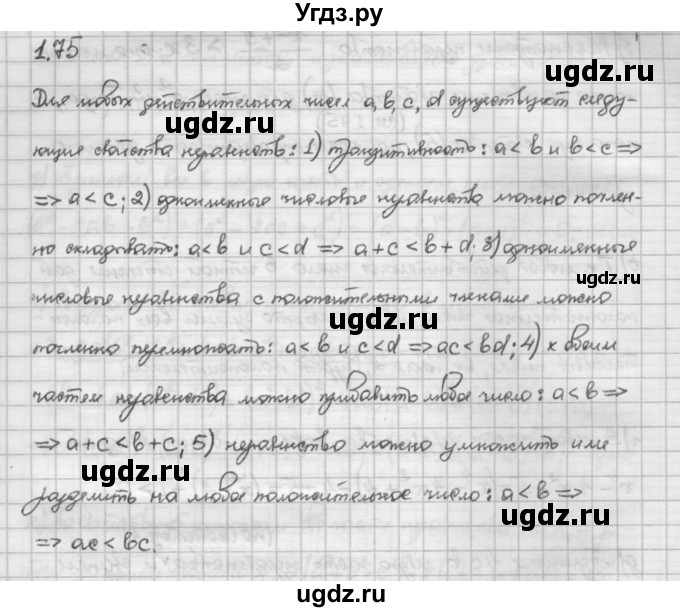 Угдз.ру
1.75
Для любых действительных чисел a, b, c, d существуют следу-
ющие свойства неравенств: 1) транзитивность: a < b и b < c ⇒
⇒ a < c; 2) одноименные числовые неравенства можно почлен-
но складывать: a < b и c < d ⇒ a + c < b + d; 3) одноименные
числовые неравенства с положительными членами можно
почленно перемножать: a < b и c < d ⇒ ac < bd; 4) к обеим
частям неравенства можно прибавить любое число: a < b ⇒
⇒ a + c < b + c; 5) неравенство можно умножить или
разделить на любое положительное число: a < b ⇒
⇒ ac < bc.
ugdz.ru
ugdz.ru
ugdz.ru
ugdz.ru
ugdz.ru
ugdz.ru
ugdz.ru
ugdz.ru
ugdz.ru
ugdz.ru
ugdz.ru
ugdz.ru